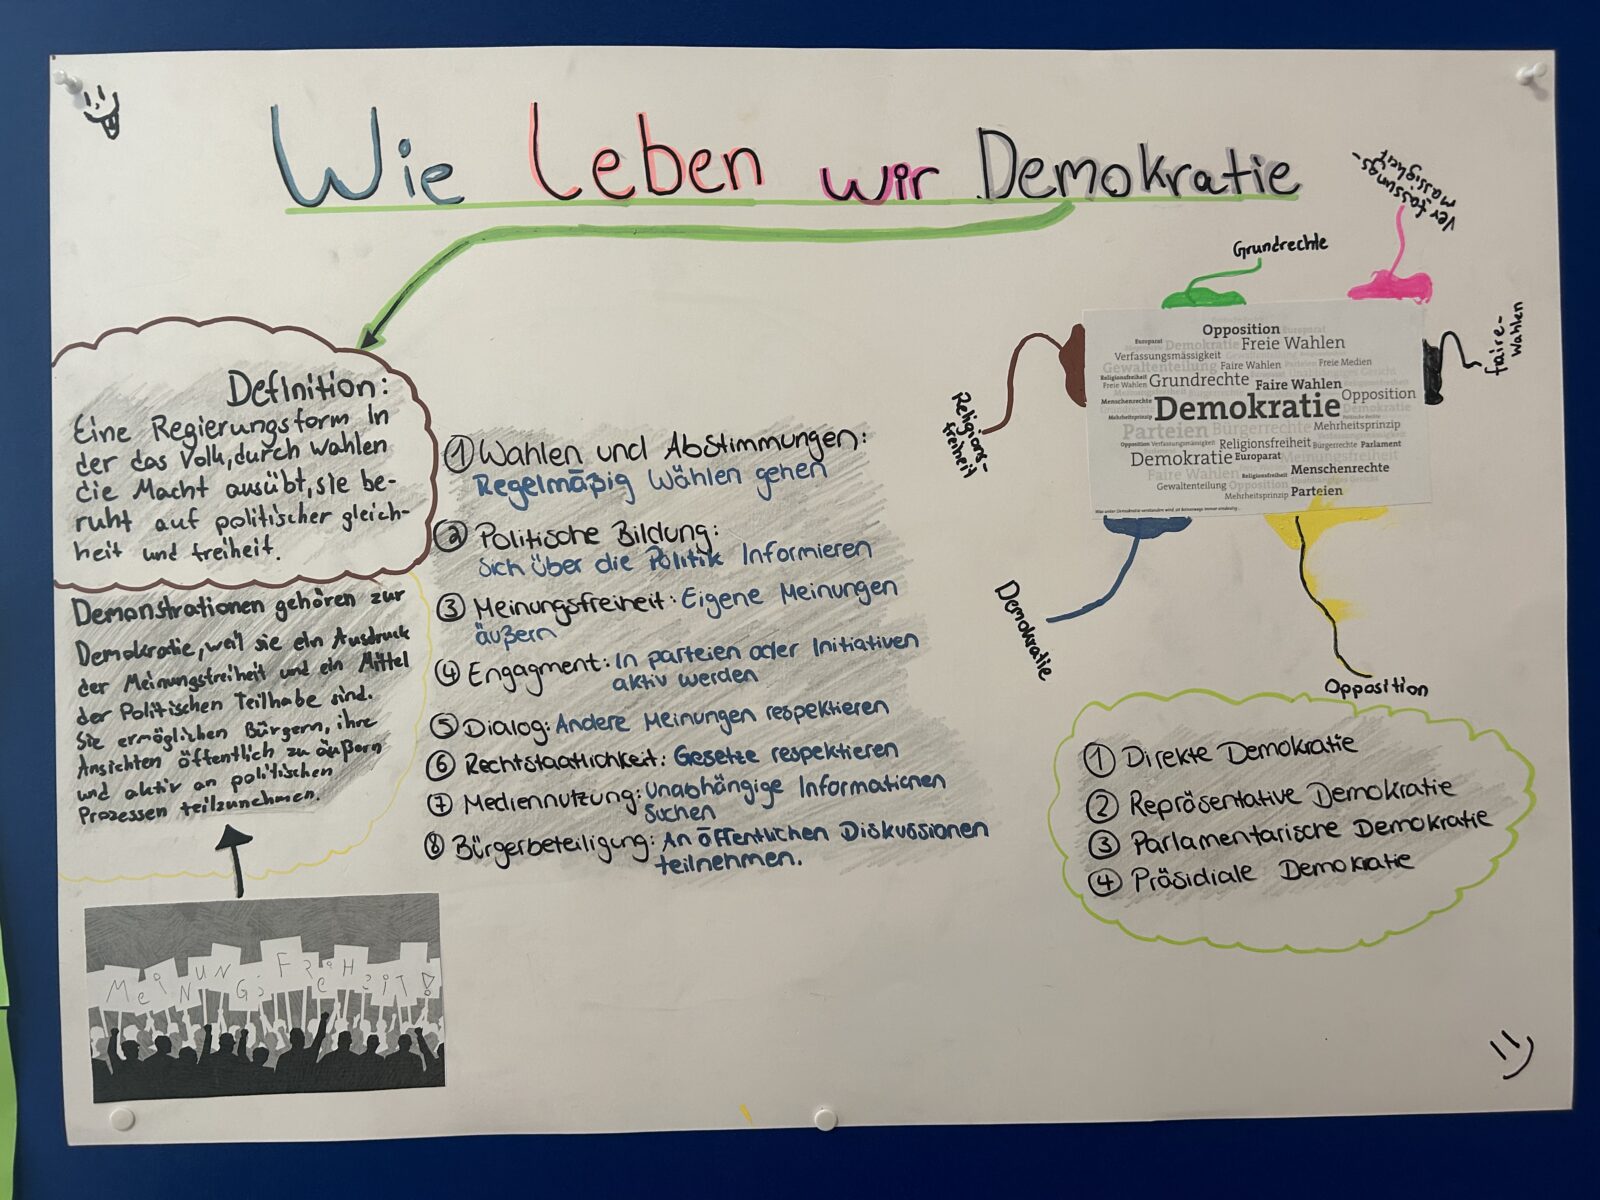 Wie Leben wir Demokratie
Definition:
Eine Regierungsform in
der das Volk, durch wahlen
die Macht ausübt, sie be-
ruht auf politischer gleich-
heit und freiheit.
Demonstrationen gehören zur
Demokratie, weil sie ein Ausdruck
der Meinungsfreiheit und ein Mittel
der Politischen Teilhabe sind.
Sie ermöglichen Bürgern, ihre
Ansichten öffentlich zu äußern
und aktiv an politischen
Prozessen teilzunehmen.
MeiNUNGSFReiHeiT!
① Wahlen und Abstimmungen:
Regelmäßig Wählen gehen
② Politische Bildung:
Sich über die Politik Informieren
③ Meinungsfreiheit: Eigene Meinungen
äußern
④ Engagment: In parteien oder Initiativen
aktiv werden
⑤ Dialog: Andere Meinungen respektieren
⑥ Rechtstaatlichkeit: Gesetze respektieren
⑦ Mediennutzung: Unabhängige Informationen
Suchen
⑧ Bürgerbeteiligung: An öffentlichen Diskussionen
teilnehmen.
Verfassungs-
mässigkeit
Grundrechte
faire-
wahlen
Religions-
freiheit
Demokratie
Opposition
Opposition Europarat
Europarat Demokratie Freie Wahlen
Verfassungsmässigkeit
Gewaltenteilung Faire Wahlen Parteien Freie Medien
Religionsfreiheit
Freie Wahlen Grundrechte Faire Wahlen
Menschenrechte Demokratie Opposition
Mehrheitsprinzip
Parteien Bürgerrechte Mehrheitsprinzip
Opposition Verfassungsmässigkeit Religionsfreiheit Bürgerrechte Parlament
Demokratie Europarat Meinungsfreiheit
Faire Wahlen Religionsfreiheit Menschenrechte
Gewaltenteilung Opposition
Mehrheitsprinzip Parteien
Was unter Demokratie verstanden wird, ist keineswegs immer eindeutig...
① Direkte Demokratie
② Repräsentative Demokratie
③ Parlamentarische Demokratie
④ Präsidiale Demokratie